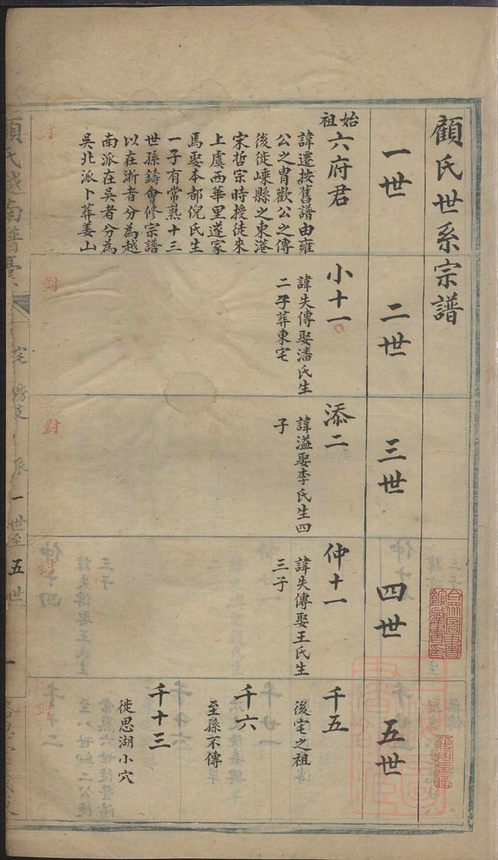 顧氏世系宗譜
一世
二世
三世
四世
五世
始祖
六府君
諱還按舊譜由雍
公之胄歡公之傳
後徙嵊縣之東港
宋哲宗時授徒來
上虞西華里遂家
馬娶本都倪氏生
一子有常熟十三
世孫鑄會修宗譜
以在浙者分為越
南派在吳者分為
吳北派卜葬姜山
小十一
諱失傳娶潘氏生
二子葬東宅
添二
諱溢娶李氏生四
子
仲十一
諱失傳娶王氏生
三子
千五
後宅之祖
千六
至孫不傳
千十三
徙思湖小穴
對
對
對
一世至五世
一